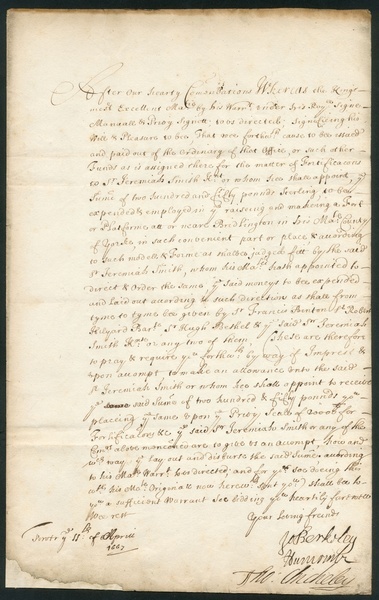 After our hearty Comendations Whereas the Kings
most Excellent Ma.ty by his Warr.t under his Roy.ll Signe
Manuall & Privy Signett to us directed Signifieing his
Will & Pleasure to bee That wee forthw.th cause to be issued
and paid out of the Ordinary of that Office, or such other
Funds as is assigned there for the matter of Fortificacons
to S.r Jeremiah Smith Kn.t or whom hee shall appoint y.e
Sume of two hundred and fifty pounds Sterling to bee
expended & employed in y.e raising and makeing a Fort
or Platforme att or neare Bridlington in his Ma.ts County
of Yorke, in such convenient part or place & according
to such modell & Forme as shalbee judged fitt by the said
S.r Jeremiah Smith, whom his Ma.ty hath appointed to
direct & Order the same, y.e said moneys to bee expended
and laid out according to such direction as shall from
tyme to tyme bee given by S.r Francis Boynton S.r Robert
Hildyard Bar.ts S.r Hugh Bethel & y.e said S.r Jeremiah
Smith K.ts or any two of them These are therefore
to pray & require you forthw.th by way of Imprest &
upon accompt to make an allowance unto the said
S.r Jeremiah Smith or whom hee shall appoint to receive
y.e said Sume of two hundred and fifty pounds you
placeing y.e same upon y.e Privy Seale of for
Fortificacons & y.e said S.r Jeremiah Smith or any of the
Gent.s above menconed are to give us an accompt, how and
w.ch way y.e lay out and disburse the said Sume, according
to his Ma.ts Warr.t to us directed and for you soe doeing this
w.th his Ma.ts Originall now herew.th sent you shall bee to
you a sufficient Warrant soe bidding you heartily farewell
Wee rest
Your loving freinds
11.th of Aprill
1667
Jo Berkeley
Tho: Chicheley